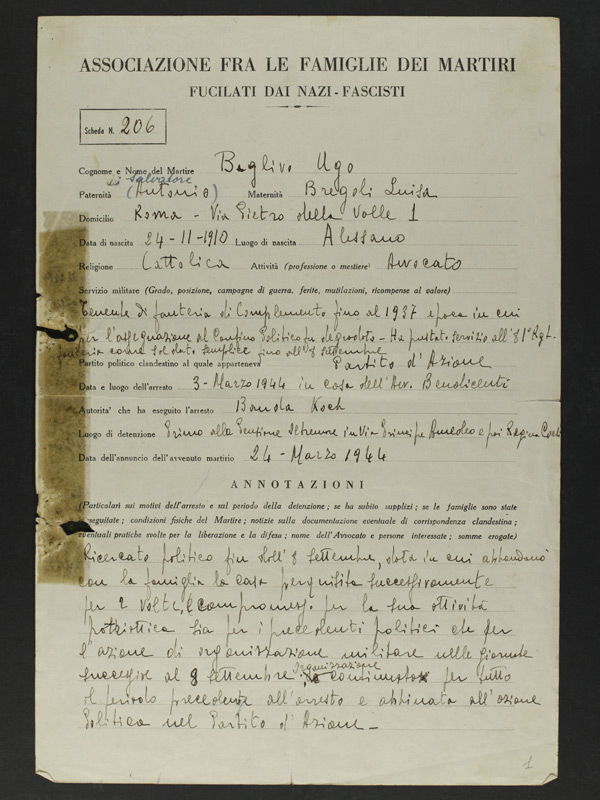 ASSOCIAZIONE FRA LE FAMIGLIE DEI MARTIRI
FUCILATI DAI NAZI-FASCISTI
Scheda N. 206
Cognome e Nome del Martire Baglivo Ugo
di Salvatore
Paternità (Antonio) Maternità Bregoli Luisa
Domicilio Roma - Via Pietro della Valle 1
Data di nascita 24-11-1910 Luogo di nascita Alessano
Religione Cattolica Attività (professione o mestiere) Avvocato
Servizio militare (Grado, posizione, campagne di guerra, ferite, mutilazioni, ricompense al valore)
Tenente di fanteria di Complemento fino al 1937 epoca in cui
per l'assegnazione al Confino Politico fu degradato - Ha prestato servizio all'81° Rgt.
fanteria come soldato semplice fino all'8 settembre
Partito politico clandestino al quale apparteneva Partito d'Azione
Data e luogo dell'arresto 3-Marzo 1944 in casa dell'Avv. Bendicenti
Autorita' che ha eseguito l'arresto Banda Koch
Luogo di detenzione Primo alla Pensione Oltremare in Via Principe Amedeo e poi Regina Coeli
Data dell'annuncio dell'avvenuto martirio 24-Marzo 1944
ANNOTAZIONI
(Particolari sui motivi dell'arresto e sul periodo della detenzione; se ha subito supplizi; se le famiglie sono state
perseguitate; condizioni fisiche del Martire; notizie sulla documentazione eventuale di corrispondenza clandestina;
eventuali pratiche svolte per la liberazione e la difesa; nome dell'Avvocato e persone interessate; somme erogate)
Ricercato politico fin dall'8 settembre, data in cui abbandonò
con la famiglia la casa perquisita successivamente
per 2 volte, è compromesso per la sua attività
patriottica sia per i precedenti politici che per
l'azione di organizzazione militare nelle giornate
successive al 8 settembre organizzazione continuata per tutto
il periodo precedente all'arresto e abbinata all'azione
Politica nel Partito d'Azione -
1